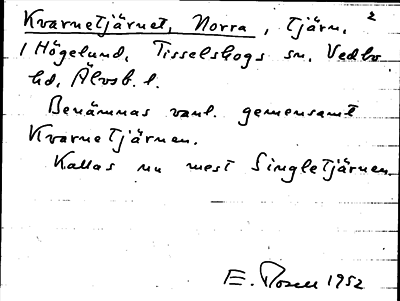 Kvarnetjärnet, Norra, tjärn. 2
i Högelund, Tisselskogs sn. Vedbo
hd. Älvsb. l.
Benämnas vanl. gemensamt
Kvarnetjärnen.
Kallas nu mest Singletjärnen
E. Rosell 1952